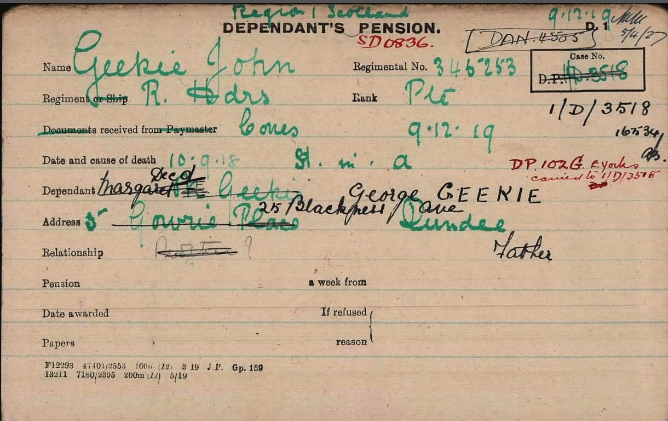 Region 1 Scotland
9.12.19
DEPENDANT'S PENSION.
D. 1
5/4/27
SD0836.
DAN.4505
Name Geekie John
Regimental No. 345253
Case No.
D.P. 1/D.3518
Regiment or Ship R. Hdrs
Rank Pte
1/D/3518
Documents received from Paymaster Cones
9.12.19
16534/
Date and cause of death 10.9.18
DP. 102G. E. Yorks
carried to 1/D/3518
Decd
Dependant Margaret Geekie George GEEKIE
25 Blackness Ave
Address 5 Gowrie Place Dundee
Relationship ? Father
Pension a week from
Date awarded If refused
Papers reason
F12293 47401/2553 160m (12) 3 19 J.P. Gp. 159
13211 7180/2395 200m (12) 5/19